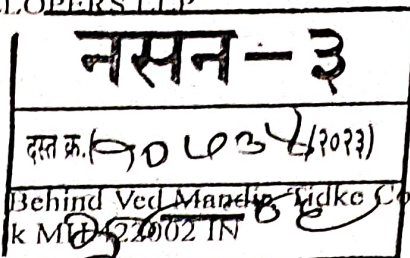 LOPERS LLP
नसन - ३
दस्त क्र. (१०७३५/२०२३)
Behind Ved Mandir, Tidke Co
k MH 422002 IN